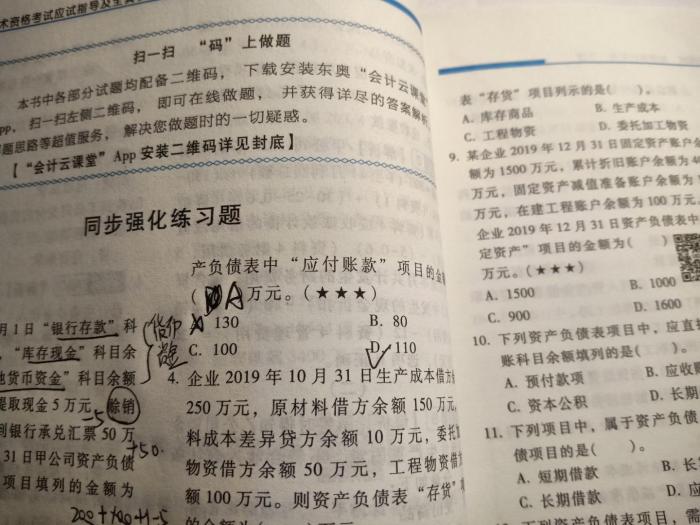 术资格考试应试指导及全真
扫一扫 “码”上做题
本书中各部分试题均配备二维码, 下载安装东奥“会计云课堂”
App, 扫一扫左侧二维码, 即可在线做题, 并获得详尽的答案解析
题思路等超值服务, 解决您做题时的一切疑惑。
【“会计云课堂”App 安装二维码详见封底】
同步强化练习题
月 1 日“银行存款”科
,“库存现金”科目余
他货币资金”科目余额
提取现金 5 万元, 赊销
到银行承兑汇票 50 万
+50
31 日甲公司资产负债
项目填列的金额为
产负债表中“应付账款”项目的金额
( A 万元。(★★★)
A 130 B. 80
C. 100 D. 110
4. 企业 2019 年 10 月 31 日生产成本借方
250 万元, 原材料借方余额 150 万元,
料成本差异贷方余额 10 万元, 委托加
物资借方余额 50 万元, 工程物资借
额 100 万元。则资产负债表“存货”
表“存货”项目列示的是( )。
A. 库存商品 B. 生产成本
C. 工程物资 D. 委托加工物资
9. 某企业 2019 年 12 月 31 日固定资产账户余
额为 1500 万元, 累计折旧账户余额为
万元, 固定资产减值准备账户余额为
万元, 在建工程账户余额为 100 万元,
企业 2019 年 12 月 31 日资产负债表中
定资产”项目的金额为( )
万元。(★★★)
A. 1500 B. 1000
C. 900 D. 1600
10. 下列资产负债表项目中, 应直接
账科目余额填列的是( )。
A. 预付款项 B. 应收账
C. 资本公积 D. 长期
11. 下列项目中, 属于资产负债
债项目的是( )。
A. 短期借款 B. 长
C. 长期借款 D. 应